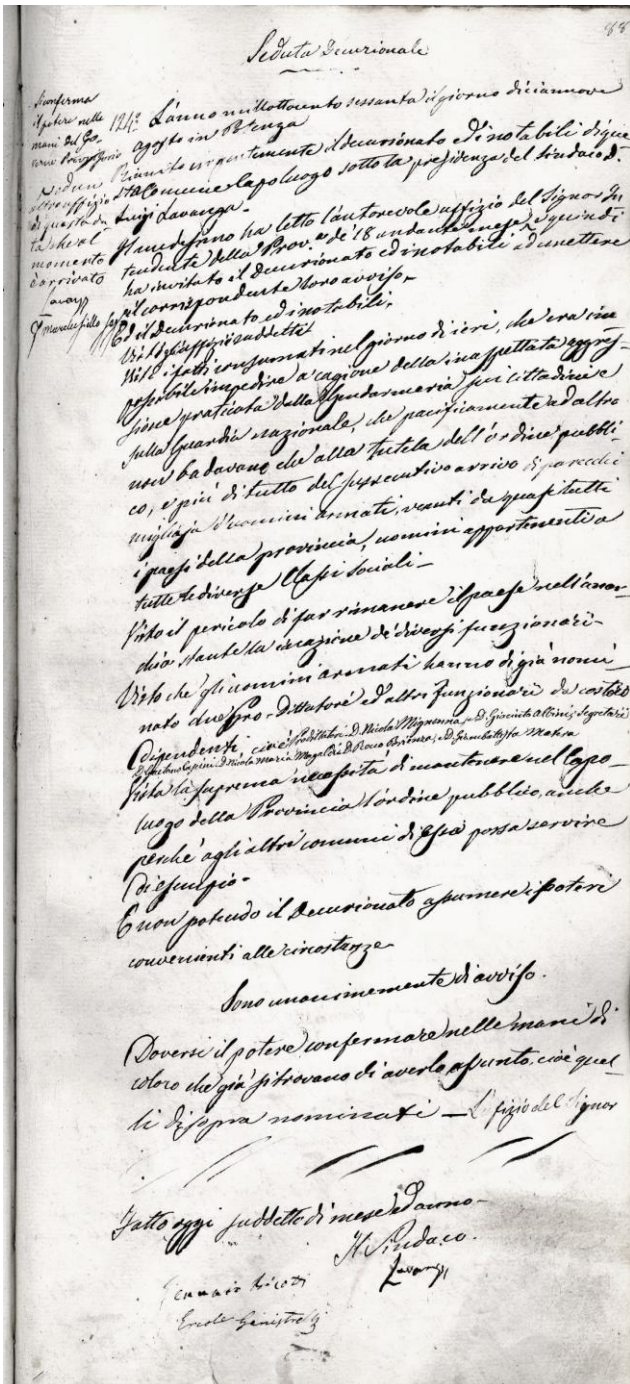 88
Seduta Decurionale
Si conferma
il potere nelle
mani del Go-
verno Provvisorio
124º L'anno milleottocento sessanta il giorno diciannove
agosto in Potenza
Riunito urgentemente il decurionato ed i notabili di que-
sta Comune capoluogo sotto la presidenza del Sindaco D.
Luigi Lavanga.
altro uffizio
di questa da
ta che al
momento
è arrivato
Il medesimo ha letto l'autorevole uffizio del Signor In-
tendente della Prov.ª de' 18 andante mese, e quindi
ha invitato il decurionato ed i notabili ad emettere
il corrispondente loro avviso,
Ed il Decurionato ed i notabili,
Visti gli uffizi suddetti
Visti i fatti consumati nel giorno di ieri, che era im-
possibile impedire a cagione della inaspettata aggres-
sione praticata dalla Gendarmeria sui cittadini e
sulla Guardia nazionale, che pacificamente ad altro
non badavano che alla tutela dell'ordine pubbli-
co, e più di tutto del successivo arrivo di parecchi
migliaja d'uomini armati, venuti da quasi tutti
i paesi della provincia, uomini appartenenti a
tutte le diverse Classi Sociali —
Visto il pericolo di far rimanere il paese nell'anar-
chia stante la cessazione de' diversi funzionarii —
Visto che gli uomini armati hanno di già nomi-
nato due Pro-Dittatori ed altri funzionarii da costoro
Dipendenti, cioè Prodittatori D. Nicola Mignogna, e D. Giacinto Albini; Segretarii
D. Gaetano Cascini D. Nicola Maria Magaldi D. Rocco Brienza, e D. Giambattista Matera
Vista la suprema necessità di mantenere nel Capo-
luogo della Provincia l'ordine pubblico, anche
perché agli altri comuni di essa possa servire
Di esempio —
E non potendo il Decurionato assumere i poteri
convenienti alle circostanze
Sono unanimemente di avviso.
Doversi il potere confermare nelle mani di
coloro che già si trovano di averlo assunto, cioè quel-
li di sopra nominati — L'ufizio del Signor
Fatto oggi suddetto dì mese ed anno —
Il Sindaco.
Lavanga
Gennaro Ricotti
Ercole Ginistrelli